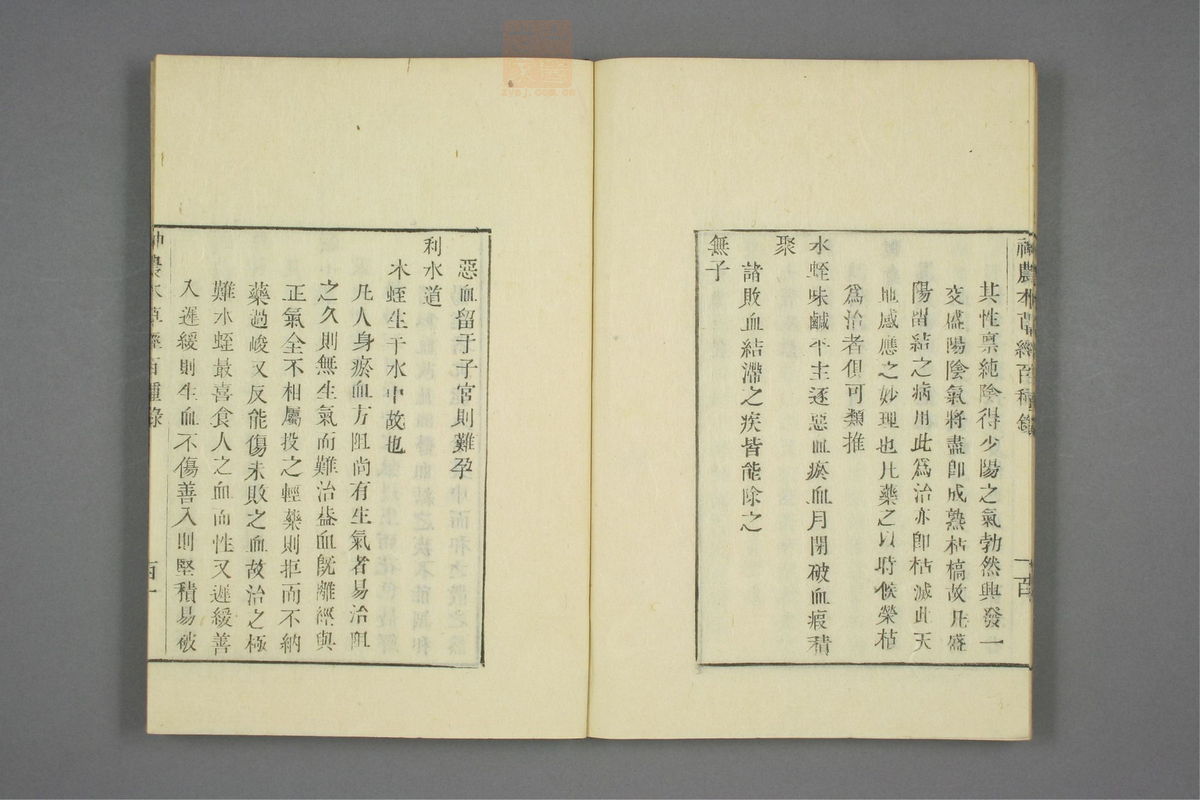 神農本草經百種錄
一百
其性稟純陰得少陽之氣勃然興發一
交盛陽陰氣將盡卽成熟枯槁故凡盛
陽留結之病用此爲治亦卽枯滅此天
地感應之妙理也凡藥之以時候榮枯
爲治者俱可類推
水蛭味鹹平主逐惡血瘀血月閉破血瘕積
聚
諸敗血結滯之疾皆能除之
無子
惡血留于子宮則難孕
利水道
水蛭生于水中故也
凡人身瘀血方阻尚有生氣者易治阻
之久則無生氣而難治葢血旣離經與
正氣全不相屬投之輕藥則拒而不納
藥過峻又反能傷未敗之血故治之極
難水蛭最喜食人之血而性又遲緩善
入遲緩則生血不傷善入則堅積易破
神農本草經百種錄
百一
zysj.com.cn